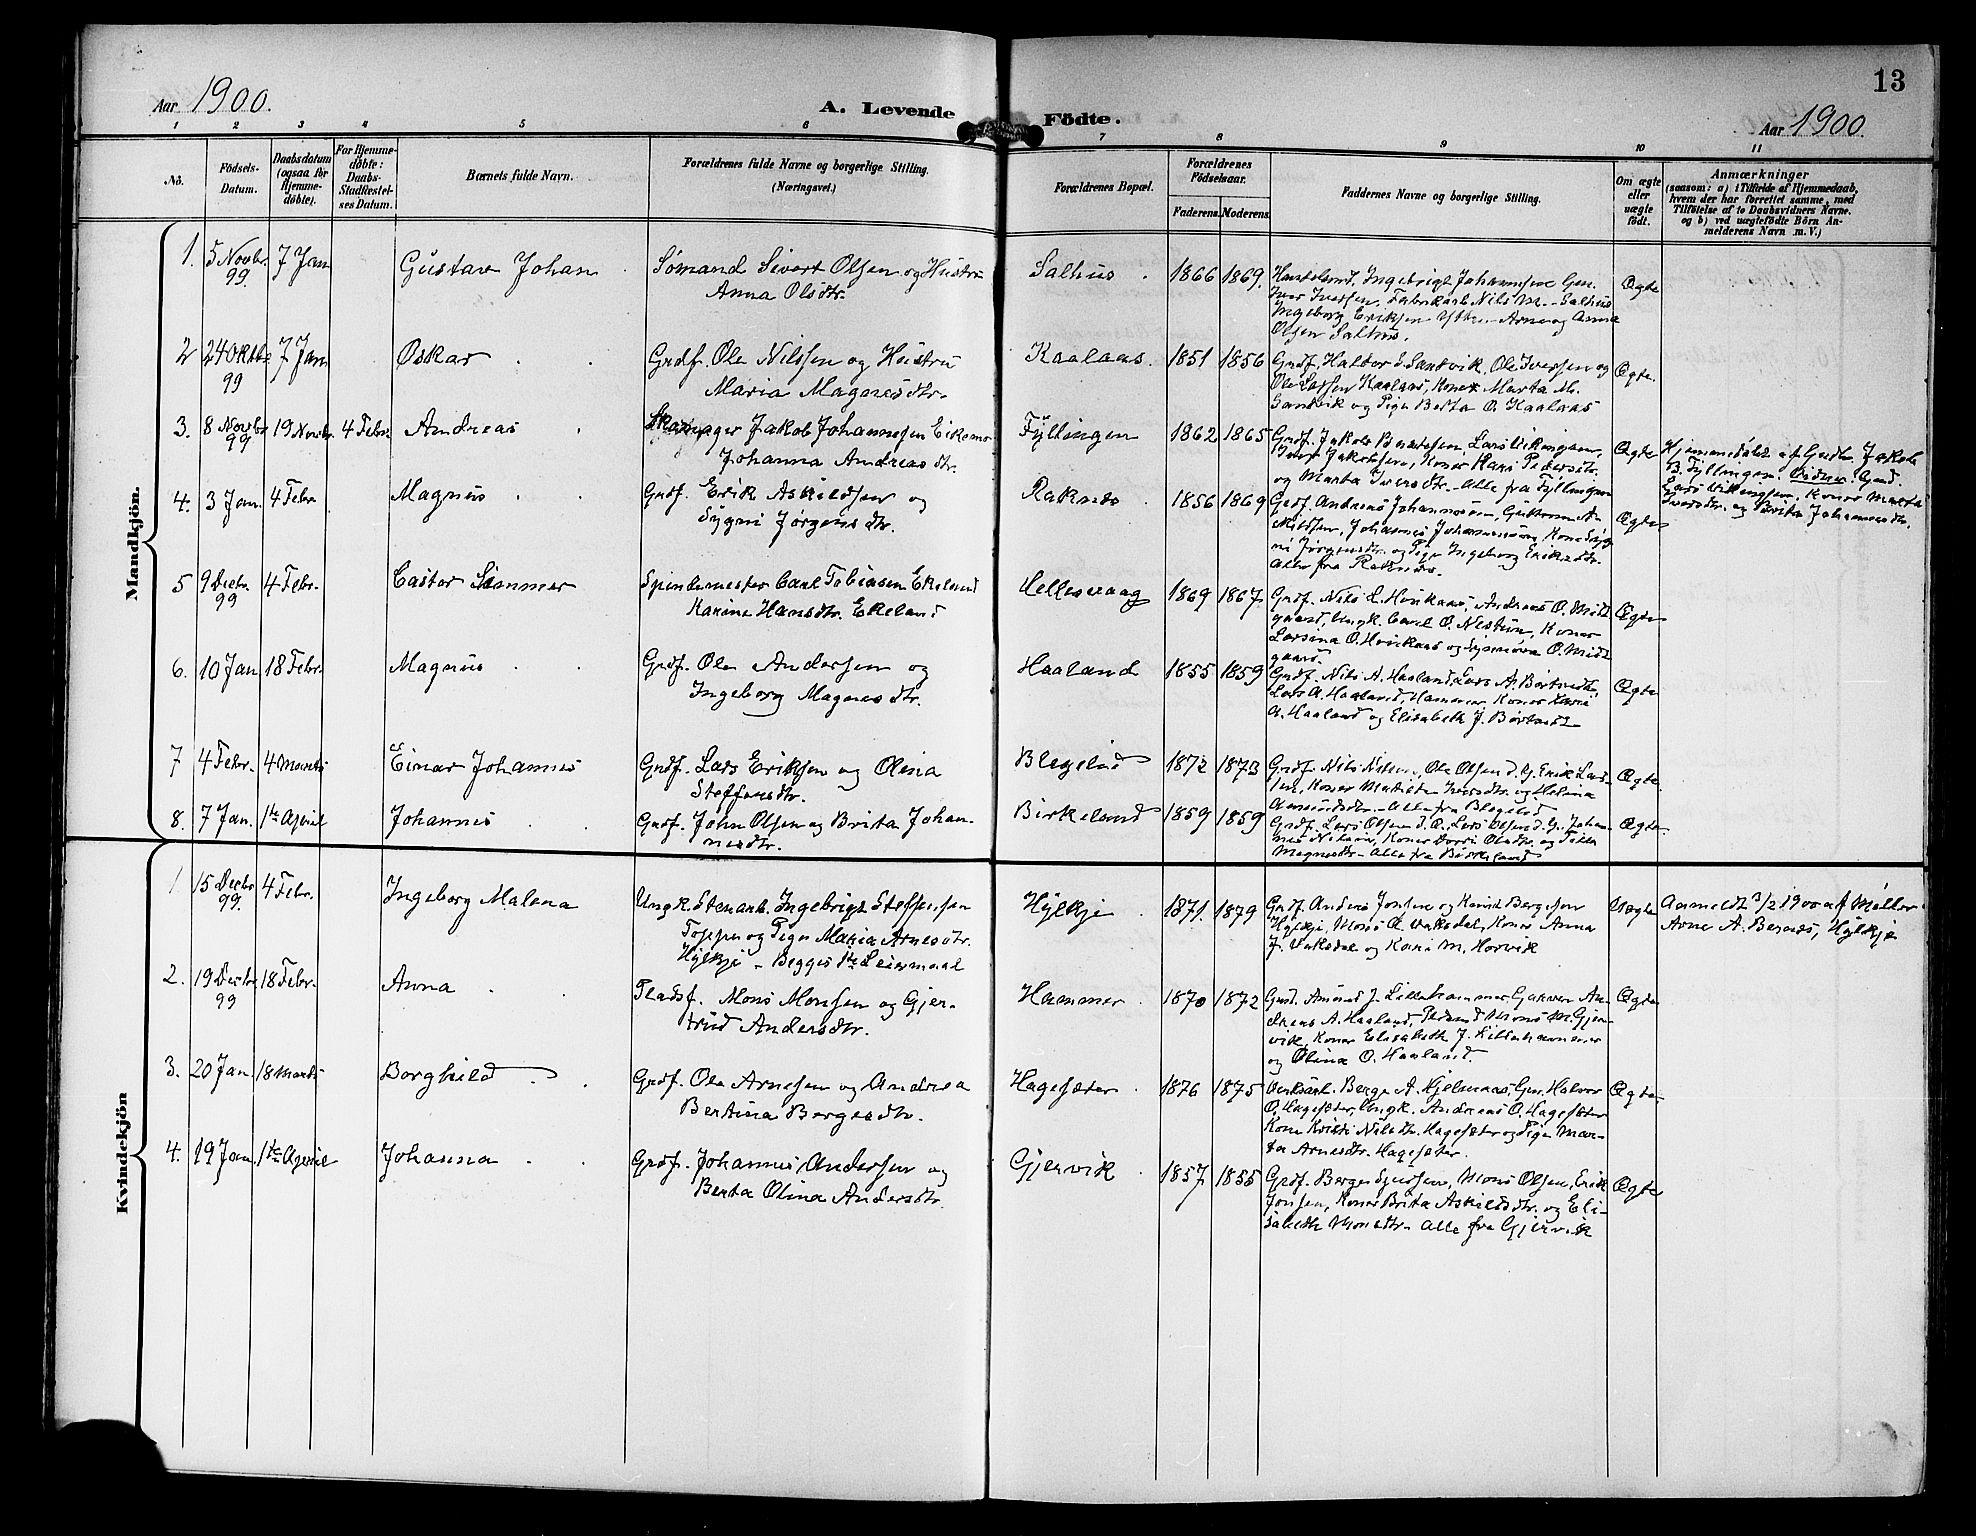 13
Aar 1900.
A. Levende Födte.
Aar 1900.
1 2 3 4 5 6 7 8 9 10 11
No.
Födsels-
Datum.
Daabsdatum
(ogsaa för
Hjemme-
döbte).
For Hjemme-
døbte:
Daabs-
Stadfestel-
ses Datum.
Barnets fulde Navn.
Forældrenes fulde Navne og borgerlige Stilling.
(Næringsvei.)
Forældrenes Bopæl.
Forældrenes
Födselsaar.
Faderens. Moderens.
Faddernes Navne og borgerlige Stilling.
Om ægte
eller
uægte
födt.
Anmærkninger
(saasom: a) i Tilfælde af Hjemmedaab,
hvem der har forrettet samme, med
Tilföielse af to Daabsvidners Navne,
og b) ved uægtefödte Börn An-
melderens Navn m. V.)
Mandkjön.
1. 5 Novbr. 99. 7 Jan Gustav Johan Sømand Sivert Olsen og Hustru
Anna Olsdtr.
Salhus 1866 1869. Ingebrigt Johannsen
Iver Iversen, Fabrikarb. Nils M. Salhus
Ingeborg Eriksen Ytter- Arne og Anna
Olsen Salhus.
Ægte
2 24 Oktbr 99 7 Jan Oskar Grdf. Ole Nilssen og Hustru
Maria Magnesdtr.
Kaalaas. 1851 1856 Grdf. Haldor S. Sandvik, Ole Iversen og
Ole Larssen Kaalaas, Koner Marta M.
Sandvik og Pige Berta O. Kaalaas
Ægte.
3. 8 Novbr 99 19 Novbr. 4 Febr. Andreas Jakob Johannessen Eikemo
Johanna Andreasdtr.
Fyllingen 1862 1865 Grdf. Jakob Berntssen, Lars Vikingsen,
Iver Jakobsen, Koner Kari Pedersdtr.
og Marta Iversdtr. - Alle fra Fyllingen
Ægte
Hjemmedøbt af Grdbr. Jakob
B. Fyllingen. Vidner: Grd.
Lars Vikingsen, Koner Marta
Iversdtr. og Brita Johannesdtr.
4. 3 Jan. 4 Febr Magnus Grdf. Erik Askildsen og
Sygni Jørgensdtr.
Raknes 1856 1869 Grdf. Andreas Johannessen,
Nilssen, Johannes Johannessen Kone Syg-
ni Jørgensdtr. og Pige Ingeborg Eriksdtr.
Alle fra Raknes.
Ægte
5 9 Decbr. 99 4 Febr. Castor Sammer Spindemester Carl Tobiasen Ekeland
Karine Hansdtr. Ekeland
Hellesvaag 1869 1867 Grdf. Nils L. Hvikaas, Andreas O. Mid
gaard, Ungk. Carl O. Nestun, Koner
Larsina O. Hvikaas og Synnøva O. Mid
gaard.
Ægte
6. 10 Jan 18 Febr. Magnus Grdf. Ole Andersen og
Ingeborg Magnesdtr.
Haaland 1855 1859 Grdf. Nils A. Haaland Lars A. Børtveit,
Lars A. Haaland, Hammer, Koner Kari
A. Haaland og Elisabeth J. Børtveit
Ægte
7 4 Febr. 4 Marts Einar Johannes Grdf. Lars Eriksen og Olina
Steffensdtr.
Blegelid 1872 1873 Grdf. Nils Nilsen, Ole Olsen d. y. Erik Lars-
sen, Koner Iversdtr. og Helina
Amundsdtr. - Alle fra Blegelid
Ægte
8. 7 Jan. 1ste April Johannes Grdf. John Olsen og Brita Johan-
nesdtr.
Birkeland 1859 1859 Grdf. Lars Olsen d. Æ., Lars Olsen d. Y. Johan-
nes Nilssen, Koner Olsdtr. og
Magnesdtr. - Alle fra Birkeland
Ægte
Kvindekjön
1 15 Decbr 99. 4 Febr. Ingeborg Malena Ungk. Stenarb. Ingebrigt Steffensen
Toppe og Pige Maria Arnesdtr.
Hylkje - Begges 1ste Leiermaal
Hylkje 1871. 1879 Grdf. Anders Jonsen og Bergesen
Hylkje, Mons A. Vaksdal, Koner Anna
J. Vaksdal og Kari M. Horvik
Uægte
Anmeldt 3/2 1900 af Møller
Arne A. Hylkje
2. 19 Decbr 99 18 Febr. Anna Pladsf. Mons Monsen og Gjer-
trud Andersdtr.
Hammer 1870 1872 Grd. Amund J. Lillehammer, An-
dreas A. Haaland, Mons M. Gjer-
vik, Koner Elisabeth J. Lillehammer
og Olina O. Haaland.
Ægte
3. 20 Jan. 18 Marts Borghild Grdf. Ole Arnesen og Andrea
Bertina Bergesdtr.
Hagesæter 1876 1875 Berge A. Hjelmaas, Halvor
O. Hagesæter, Ungk. Andreas O. Hagesæter
Kone Kristi Nilsdtr. Hagesæter og Pige Mar-
ta Arnesdtr. Hagesæter.
Ægte
4. 19 Jan. 1ste April Johanna Grdf. Johannes Andersen og
Berta Olina Andersdtr.
Gjervik 1857 1855 Grdf. Berge Mons Olsen, Erik
Jonsen, Koner Brita Askildsdtr. og Eli-
sabeth Monsdtr. Alle fra Gjervik
Ægte